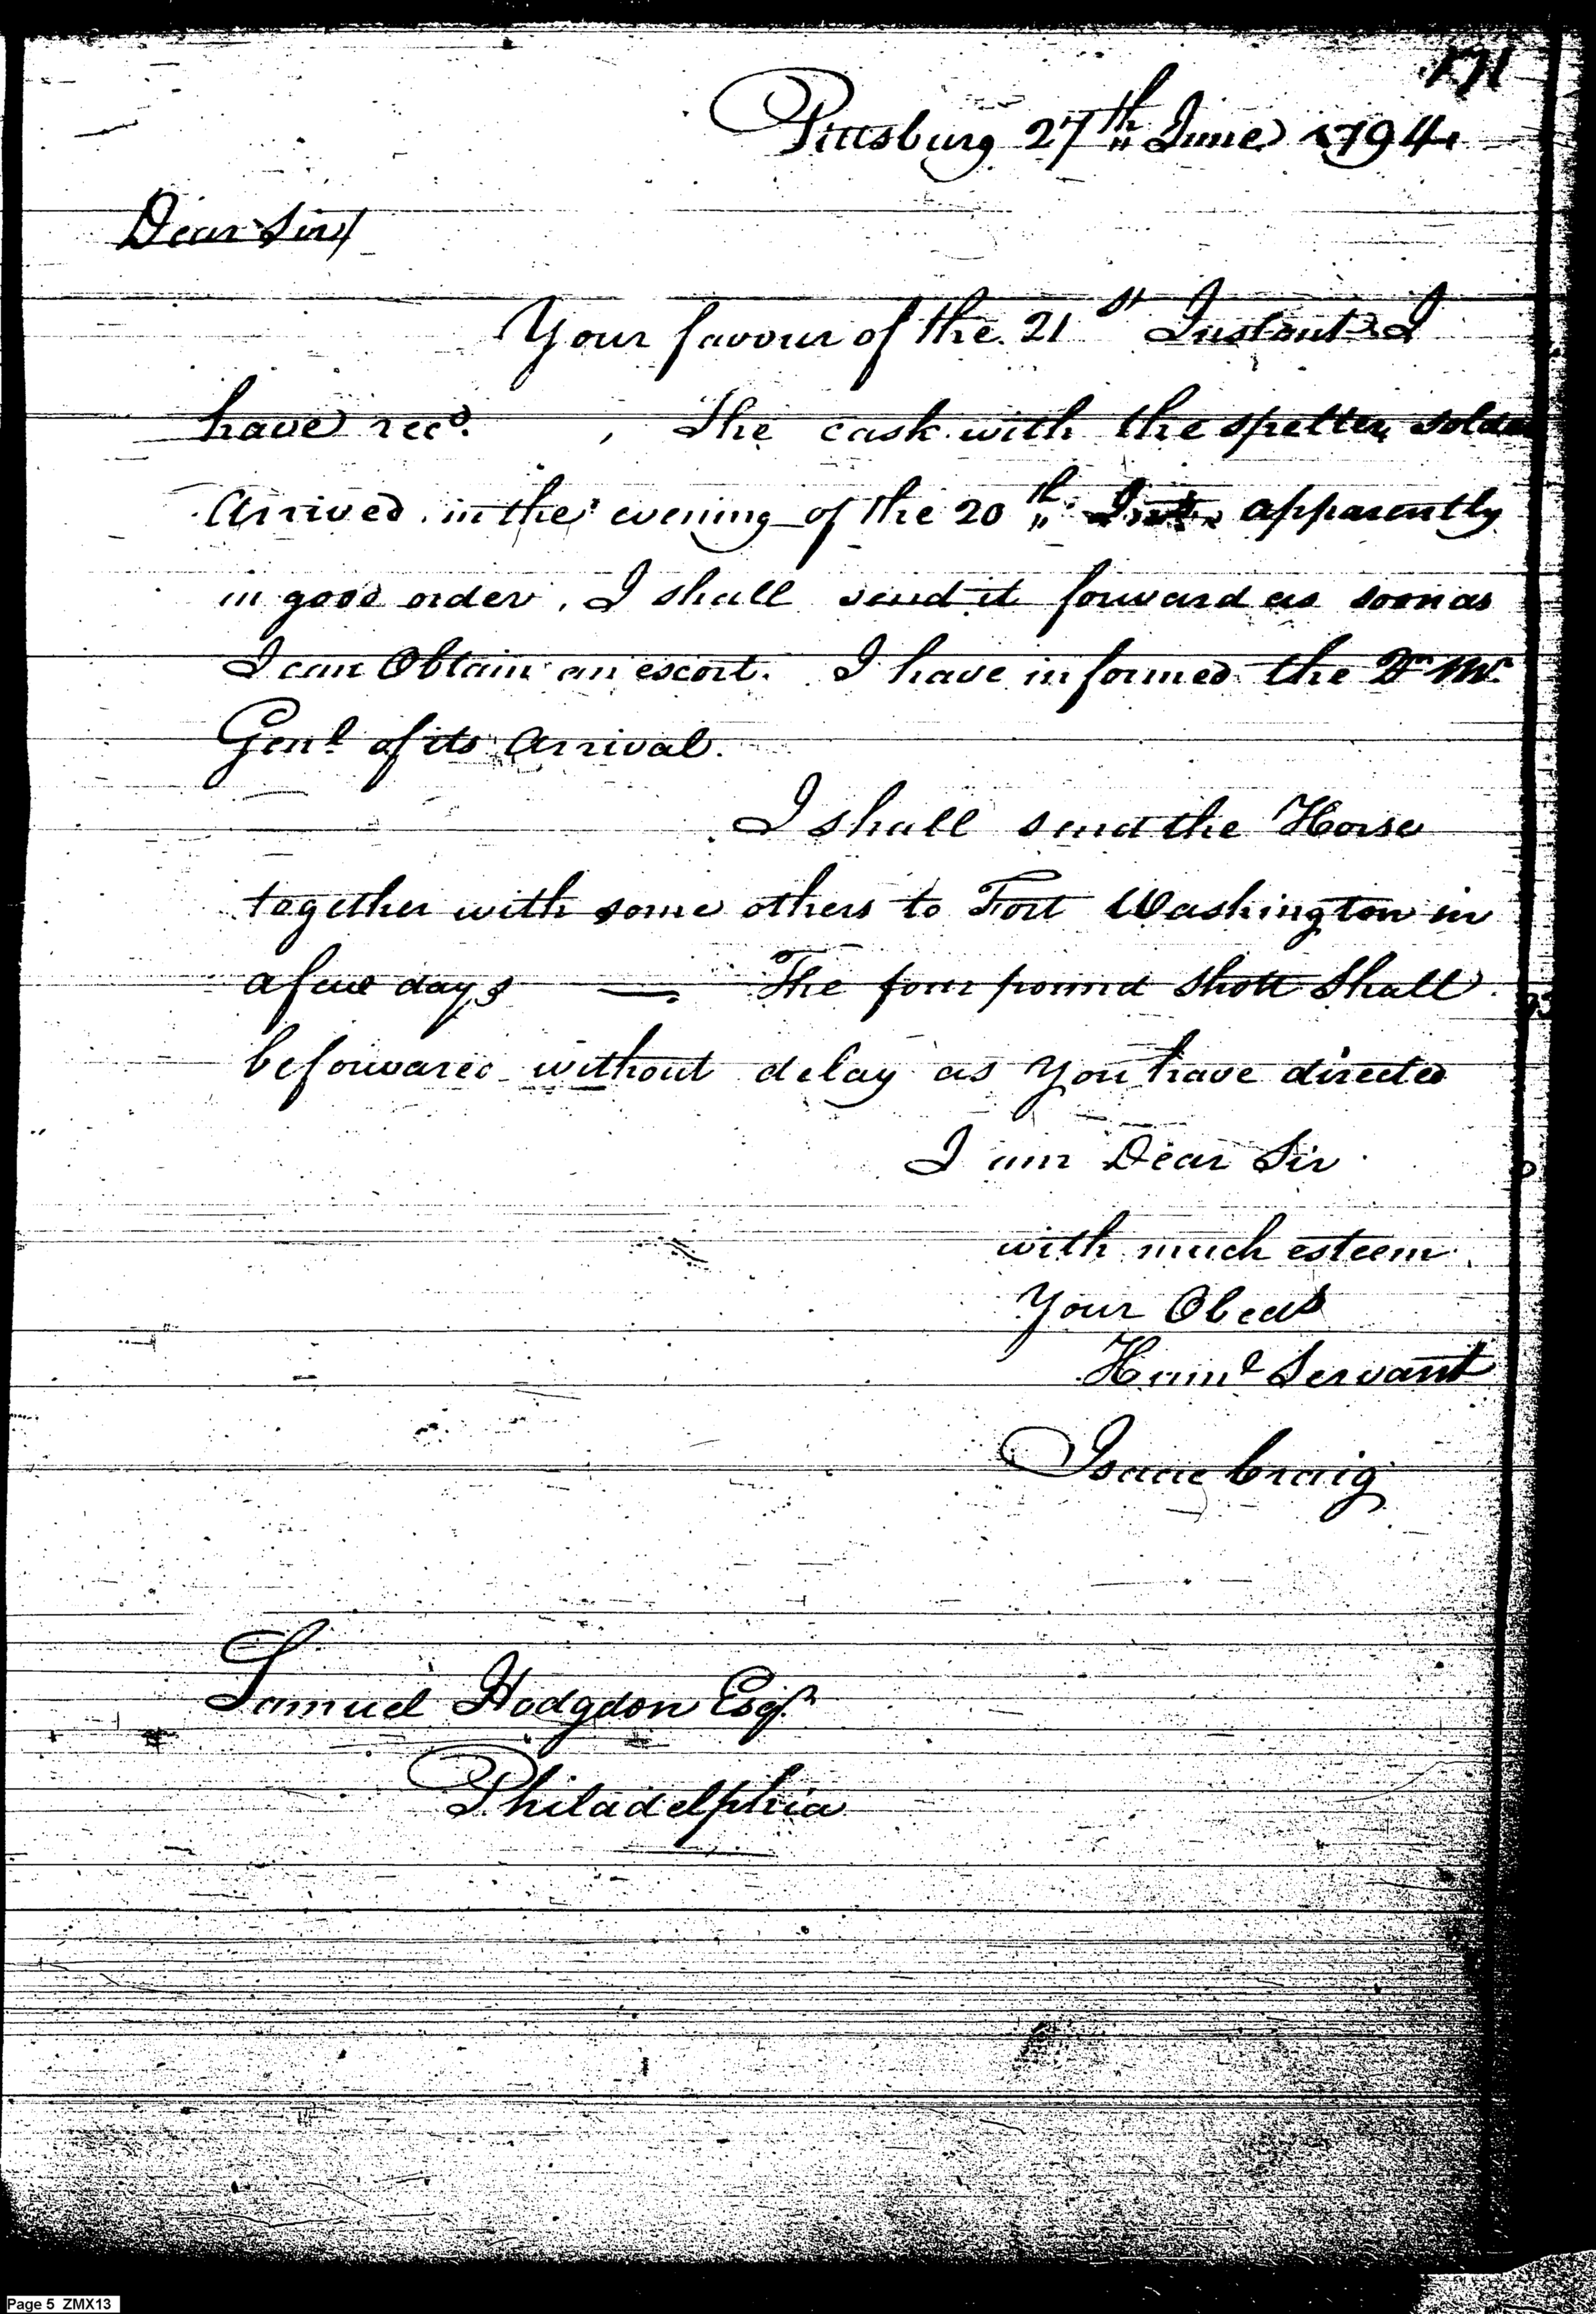 171
Pittsburg 27th June 1794.
Dear Sir/
Your favour of the 21st Instant I
have recd. , The cask with the spelter solder
Arrived in the evening of the 20th Inst. apparently
in good order. I shall send it forward as soon as
I can Obtain an escort. I have informed the Qr Mr.
Genl. of its Arrival.
I shall send the Horse
together with some others to Fort Washington in
a few days — The four pound Shott Shall
be forwared without delay as You have directed
I am Dear Sir
with much esteem
Your Obedt
Humle Servant
Isaac Craig
Samuel Hodgdon Esqr.
Philadelphia
Page 5 ZMX13